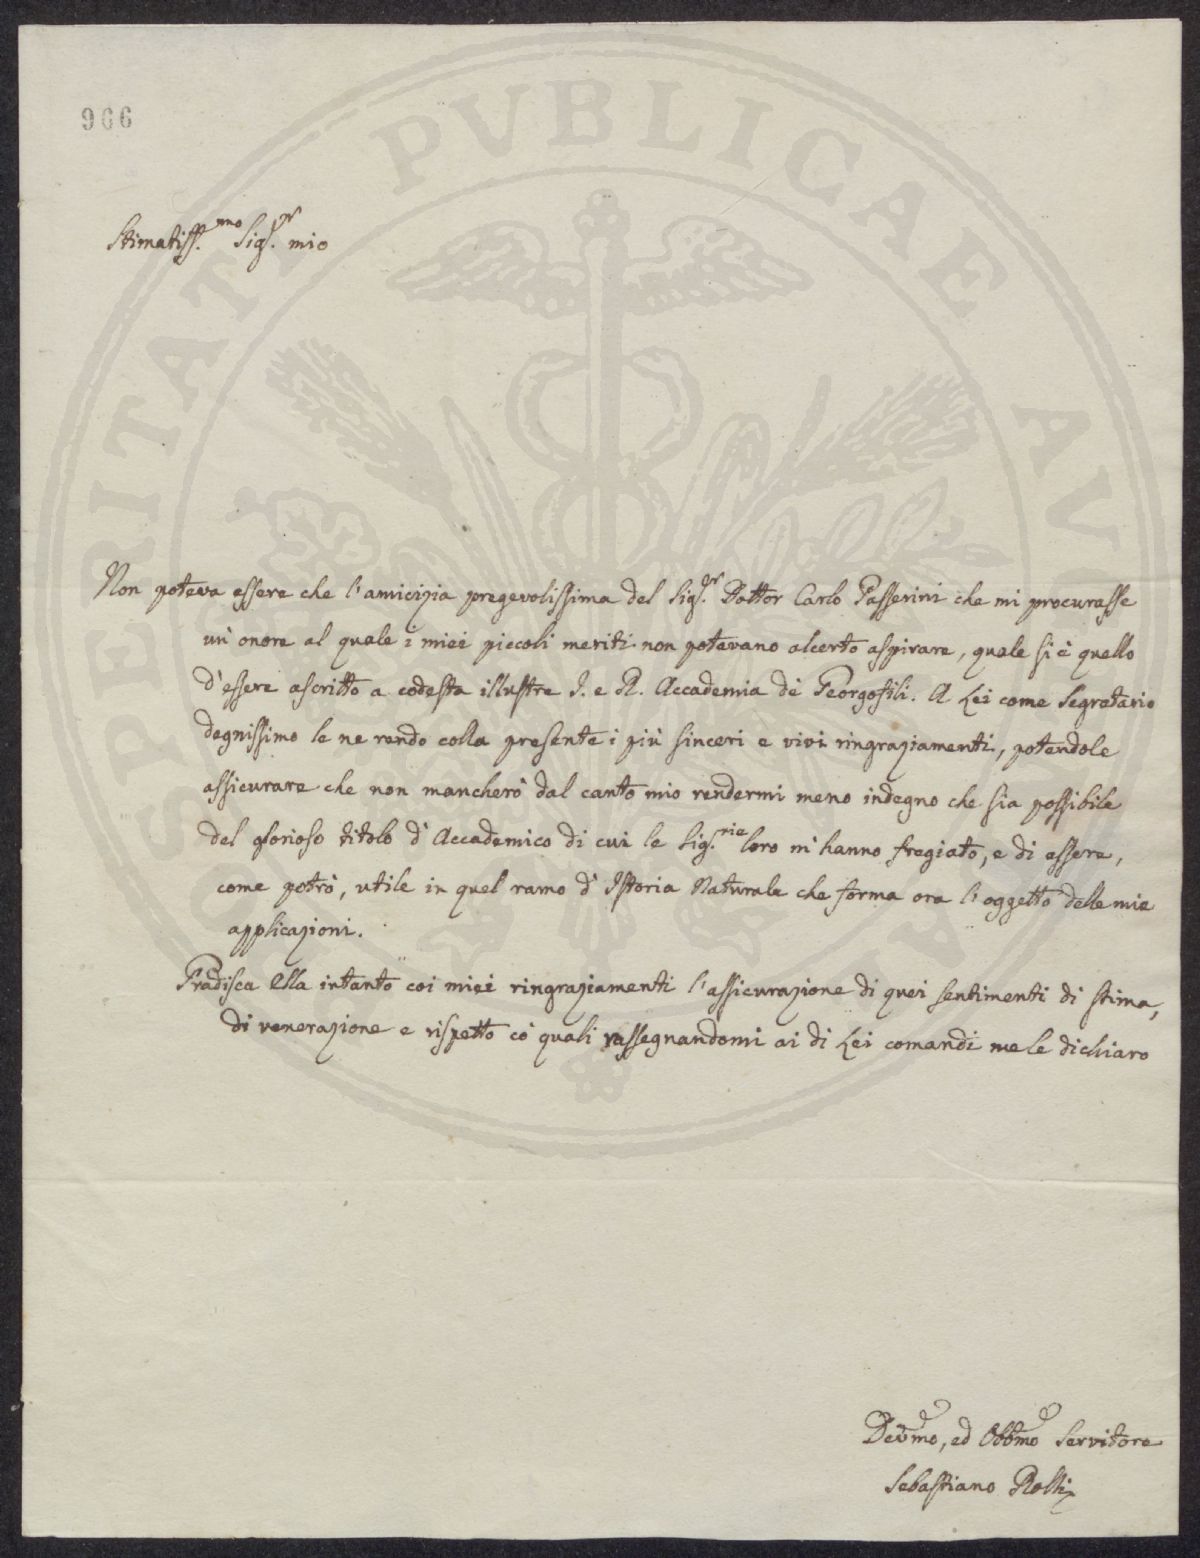 966
PROSPERITATI PVBLICAE AVGENDAE
Stimatiss.mo Sig.r mio
Non poteva essere che l'amicizia pregevolissima del Sig.r Dottor Carlo Passerini che mi procurasse
un' onore al quale i miei piccoli meriti non potevano alcerto aspirare, quale si è quello
d'essere ascritto a codesta illustre I. e R. Accademia de' Georgofili. A Lei come Segretario
degnissimo le ne rendo colla presente i più sinceri e vivi ringraziamenti, potendole
assicurare che non mancherò dal canto mio rendermi meno indegno che sia possibile
del glorioso titolo d' Accademico di cui le Sig.rie loro m' hanno fregiato, e di essere,
come potrò, utile in quel ramo d' Istoria Naturale che forma ora l'oggetto delle mie
applicazioni.
Gradisca Ella intanto coi miei ringraziamenti l'assicurazione di quei sentimenti di stima,
di venerazione e rispetto co' quali rassegnandomi ai di Lei comandi me le dichiaro
Devmo, ed Obbmo Servitore
Sebastiano